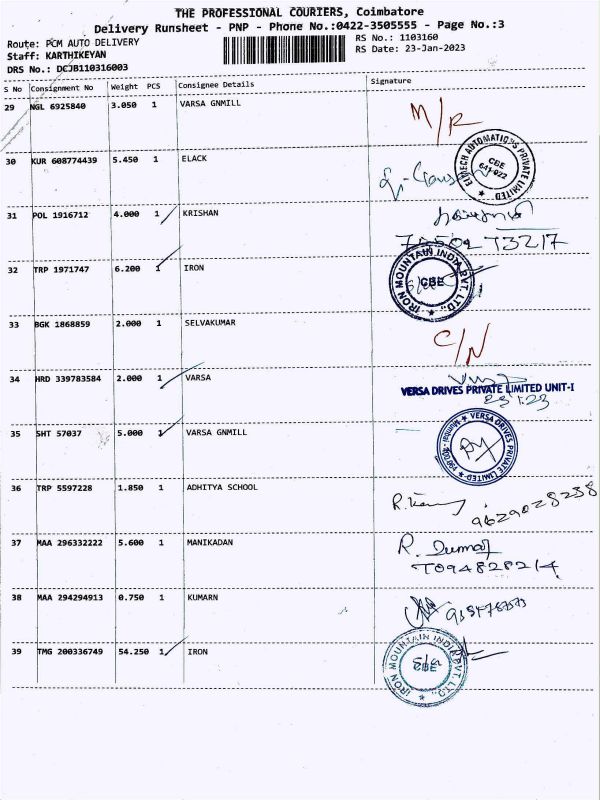 THE PROFESSIONAL COURIERS, Coimbatore
Delivery Runsheet - PNP - Phone No.:0422-3505555 - Page No.:3
Route: PCM AUTO DELIVERY
RS No.: 1103160
Staff: KARTHIKEYAN
RS Date: 23-Jan-2023
DRS No.: DCJB110316003
S No Consignment No Weight PCS Consignee Details Signature
29 NGL 6925840 3.050 1 VARSA GNMILL M/R
30 KUR 608774439 5.450 1 ELACK
ELMECH AUTOMATIONS PRIVATE LIMITED ★
CBE
641 022
31 POL 1916712 4.000 1 KRISHAN
32 TRP 1971747 6.200 1 IRON
IRON MOUNTAIN INDIA PVT. LTD.,
CBE
33 BGK 1868859 2.000 1 SELVAKUMAR C/N
34 HRD 339783584 2.000 1 VARSA
VERSA DRIVES PRIVATE LIMITED UNIT-I
23 1.23
35 SHT 57037 5.000 1 VARSA GNMILL
★ VERSA DRIVES PRIVATE LIMITED ★
36 TRP 5597228 1.850 1 ADHITYA SCHOOL
9629028238
37 MAA 296332222 5.600 1 MANIKADAN
R. Kumar
38 MAA 294294913 0.750 1 KUMARN
39 TMG 200336749 54.250 1 IRON
IRON MOUNTAIN INDIA PVT. LTD.,
CBE